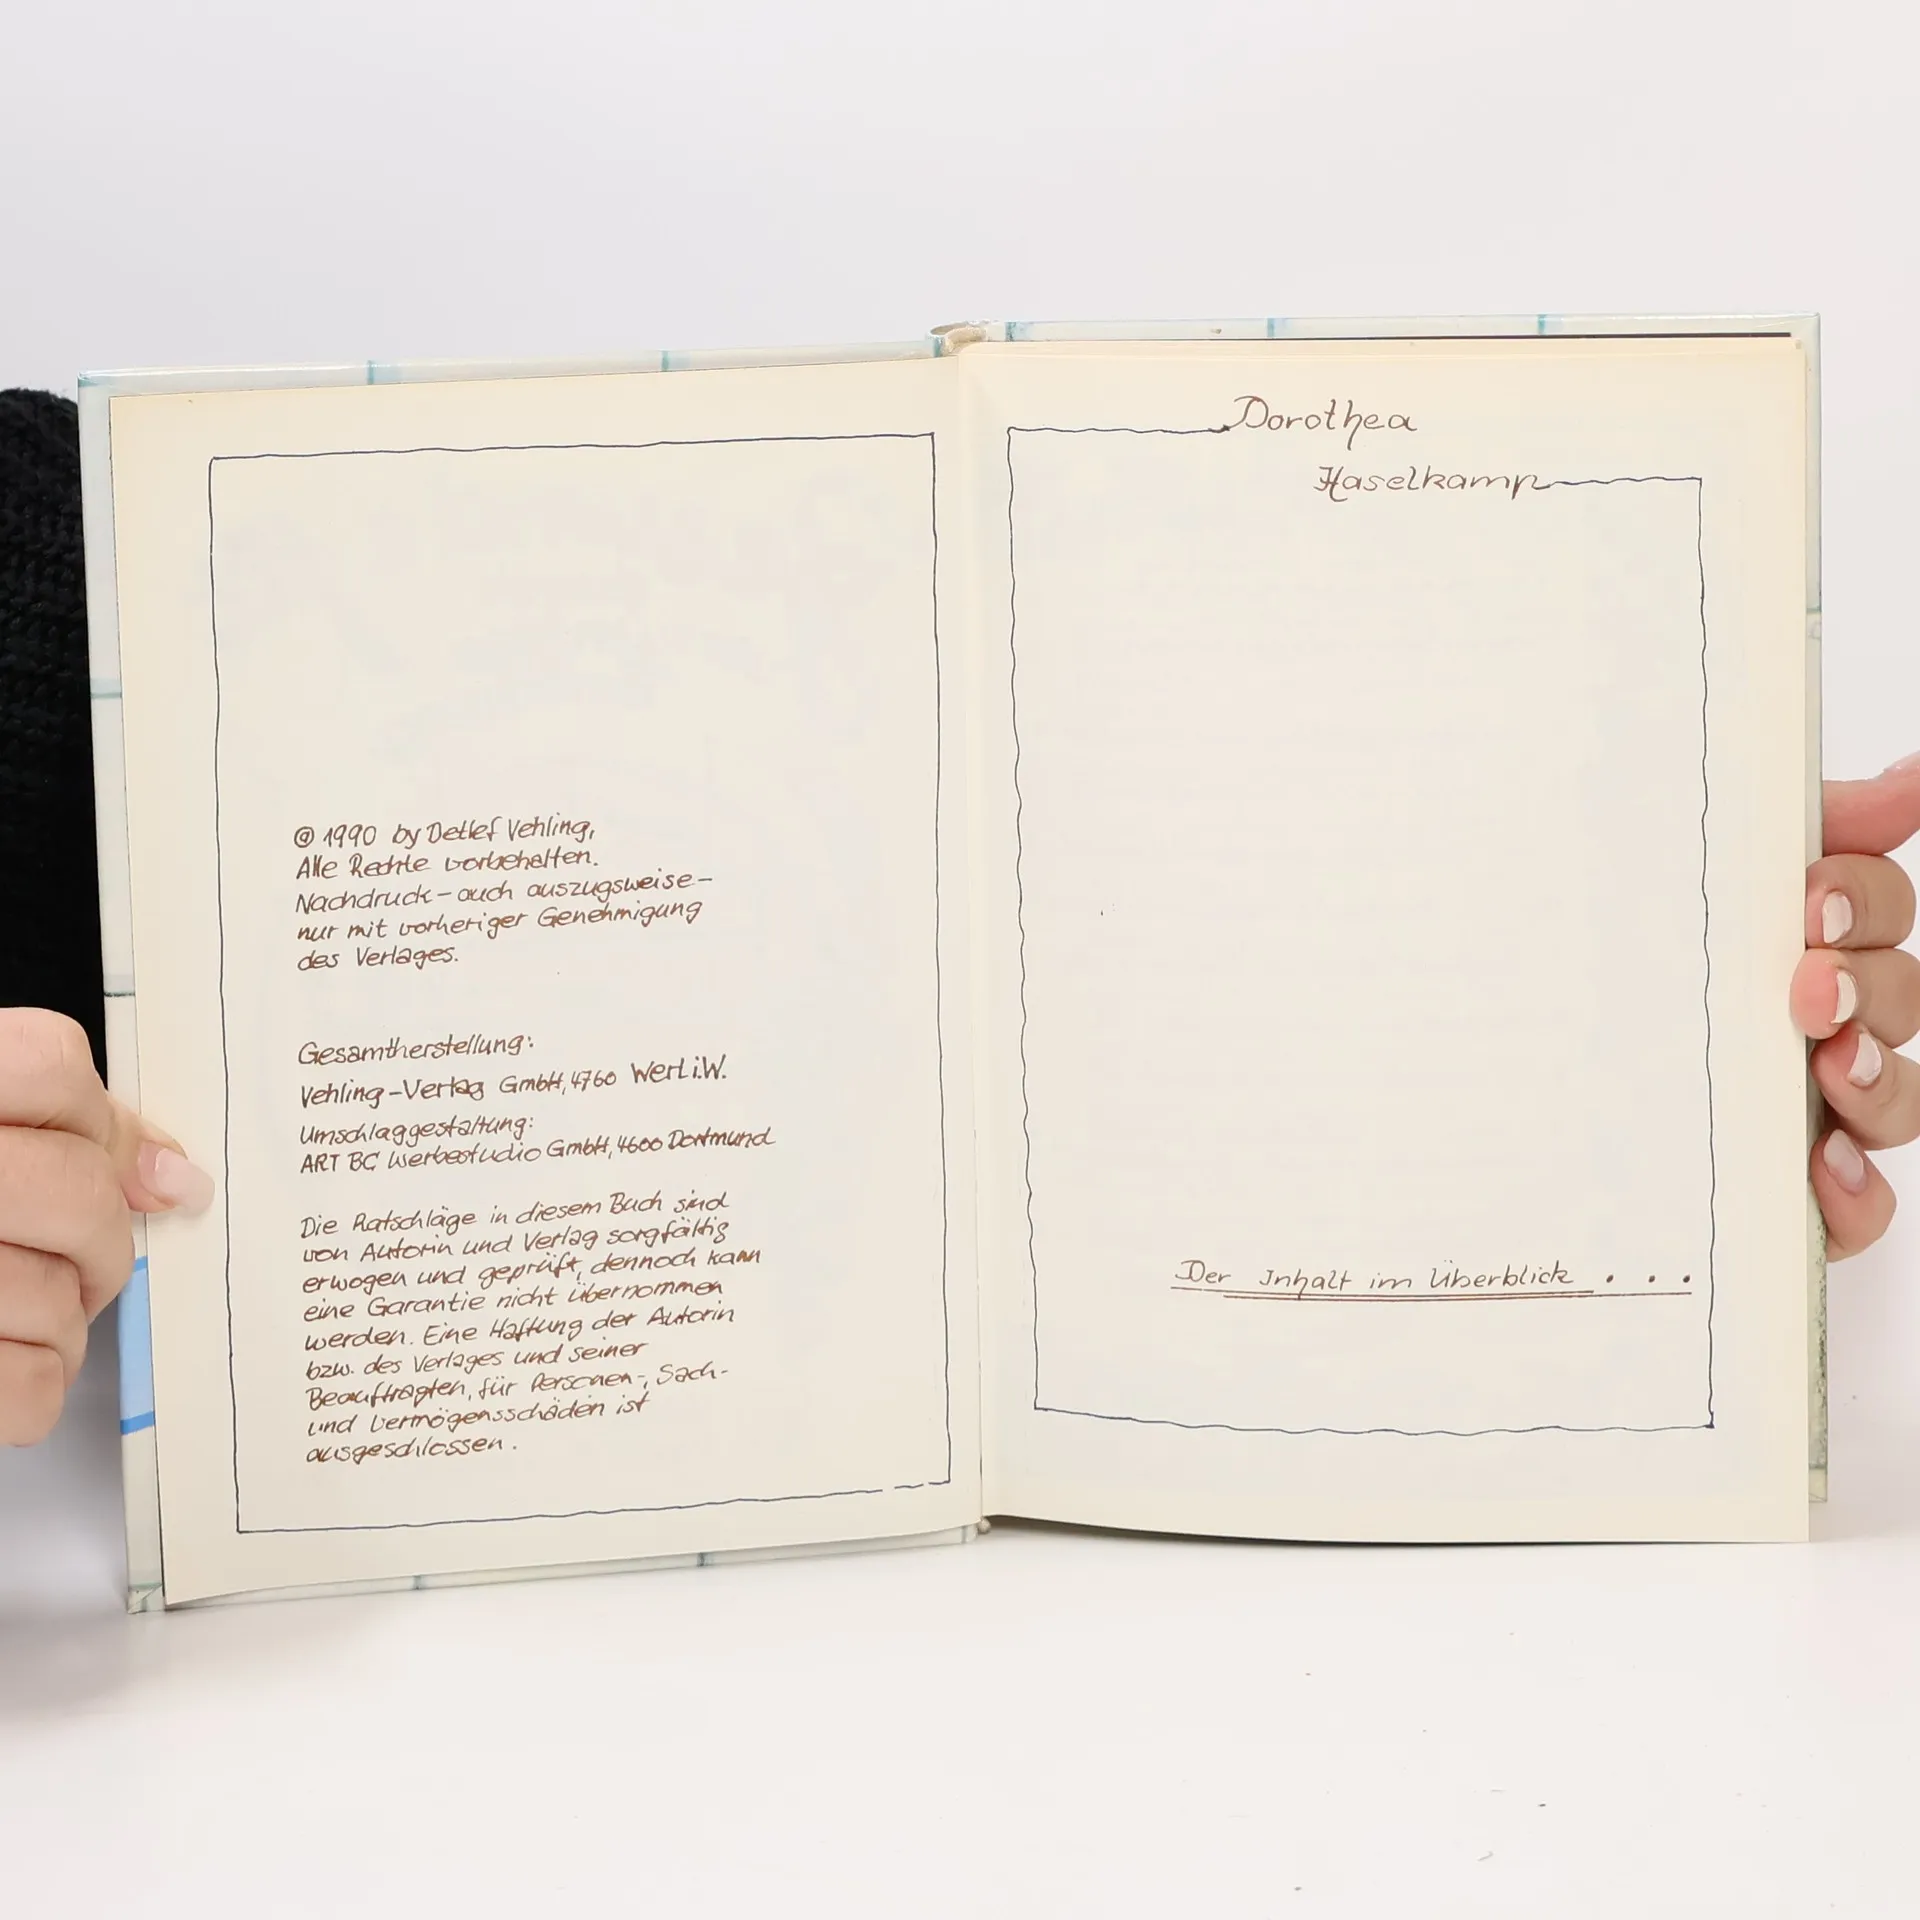 © 1990 by Detlef Vehling,
Alle Rechte vorbehalten.
Nachdruck – auch auszugsweise –
nur mit vorheriger Genehmigung
des Verlages.
Gesamtherstellung:
Vehling-Verlag GmbH, 4760 Werl i.W.
Umschlaggestaltung:
ART BC Werbestudio GmbH, 4600 Dortmund
Die Ratschläge in diesem Buch sind
von Autorin und Verlag sorgfältig
erwogen und geprüft, dennoch kann
eine Garantie nicht übernommen
werden. Eine Haftung der Autorin
bzw. des Verlages und seiner
Beauftragten, für Personen-, Sach-
und Vermögensschäden ist
ausgeschlossen.
Dorothea
Haselkamp
Der Inhalt im Überblick . . .